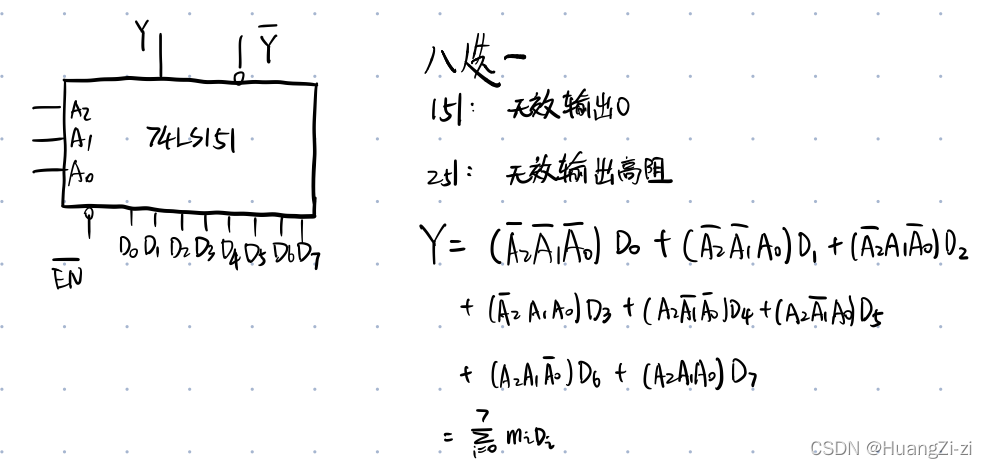 Y Y̅
A₂
A₁
A₀
74LS151
E̅N̅
D₀ D₁ D₂ D₃ D₄ D₅ D₆ D₇
八选一
151: 无效输出0
251: 无效输出高阻
Y = (A̅₂A̅₁A̅₀) D₀ + (A̅₂A̅₁A₀)D₁ + (A̅₂A₁A̅₀)D₂
+ (A̅₂A₁A₀)D₃ + (A₂A̅₁A̅₀)D₄ + (A₂A̅₁A₀)D₅
+ (A₂A₁A̅₀)D₆ + (A₂A₁A₀)D₇
= ∑ᵢ₌₀⁷ mᵢDᵢ
CSDN @HuangZi-zi